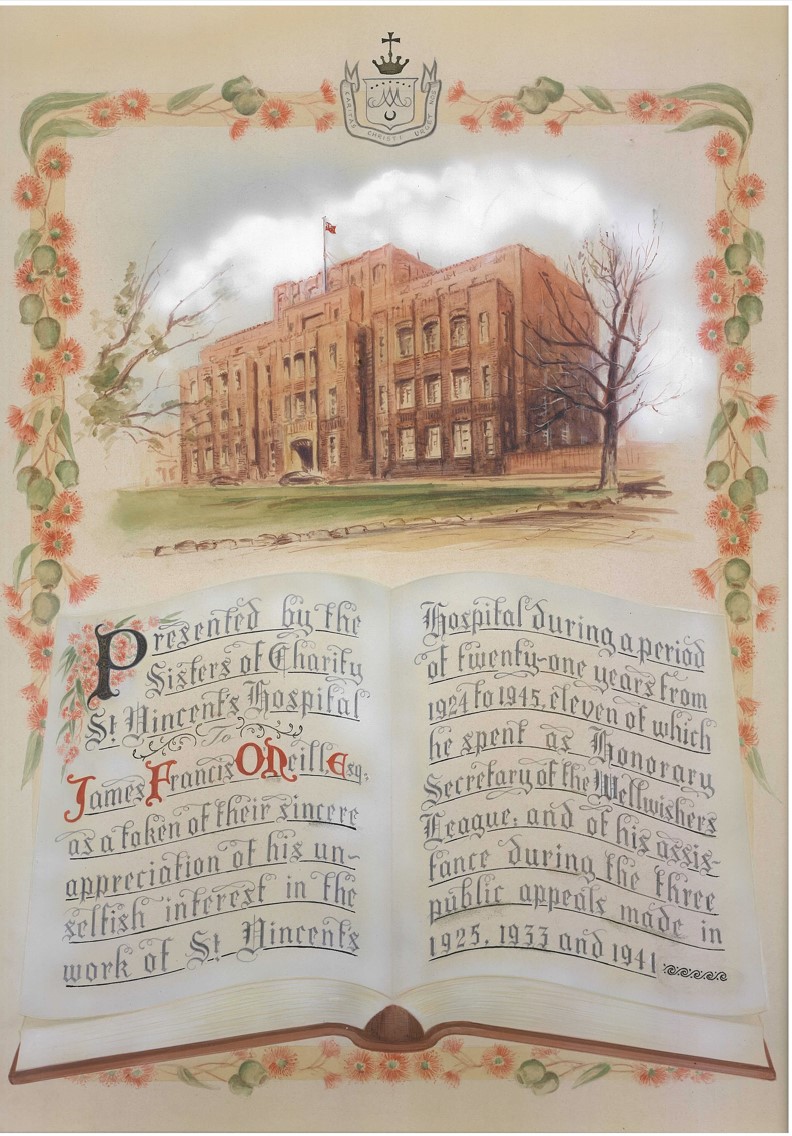 CARITAS CHRISTI URGET NOS
Presented by the
Sisters of Charity
St Vincent's Hospital
To
James Francis O'Neill, Esq:
as a token of their sincere
appreciation of his un-
selfish interest in the
work of St Vincent's
Hospital during a period
of twenty-one years from
1924 to 1945, eleven of which
he spent as Honorary
Secretary of the Wellwishers
League, and of his assis-
tance during the three
public appeals made in
1925, 1933 and 1941